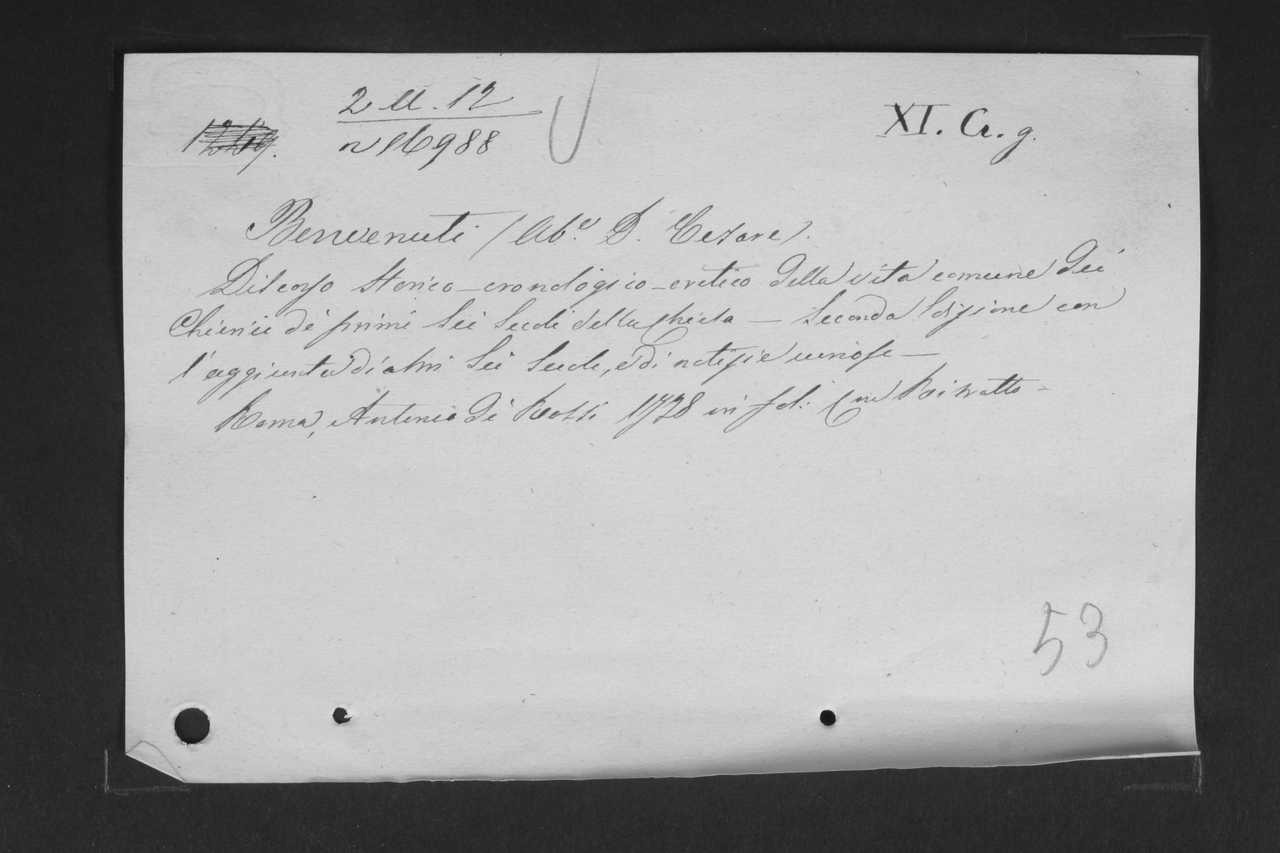 2 M. 12
n 16988
XI. Cr. g.
Benvenuti (Ab.e D. Cesare).
Discorso storico-cronologico-critico della vita comune dei
Chierici de' primi sei secoli della Chiesa – Seconda edizione con
l'aggiunta di altri sei secoli, e di notizie curiose –
Roma, Antonio de' Rossi 1728 in fol. con Ritratto –
53